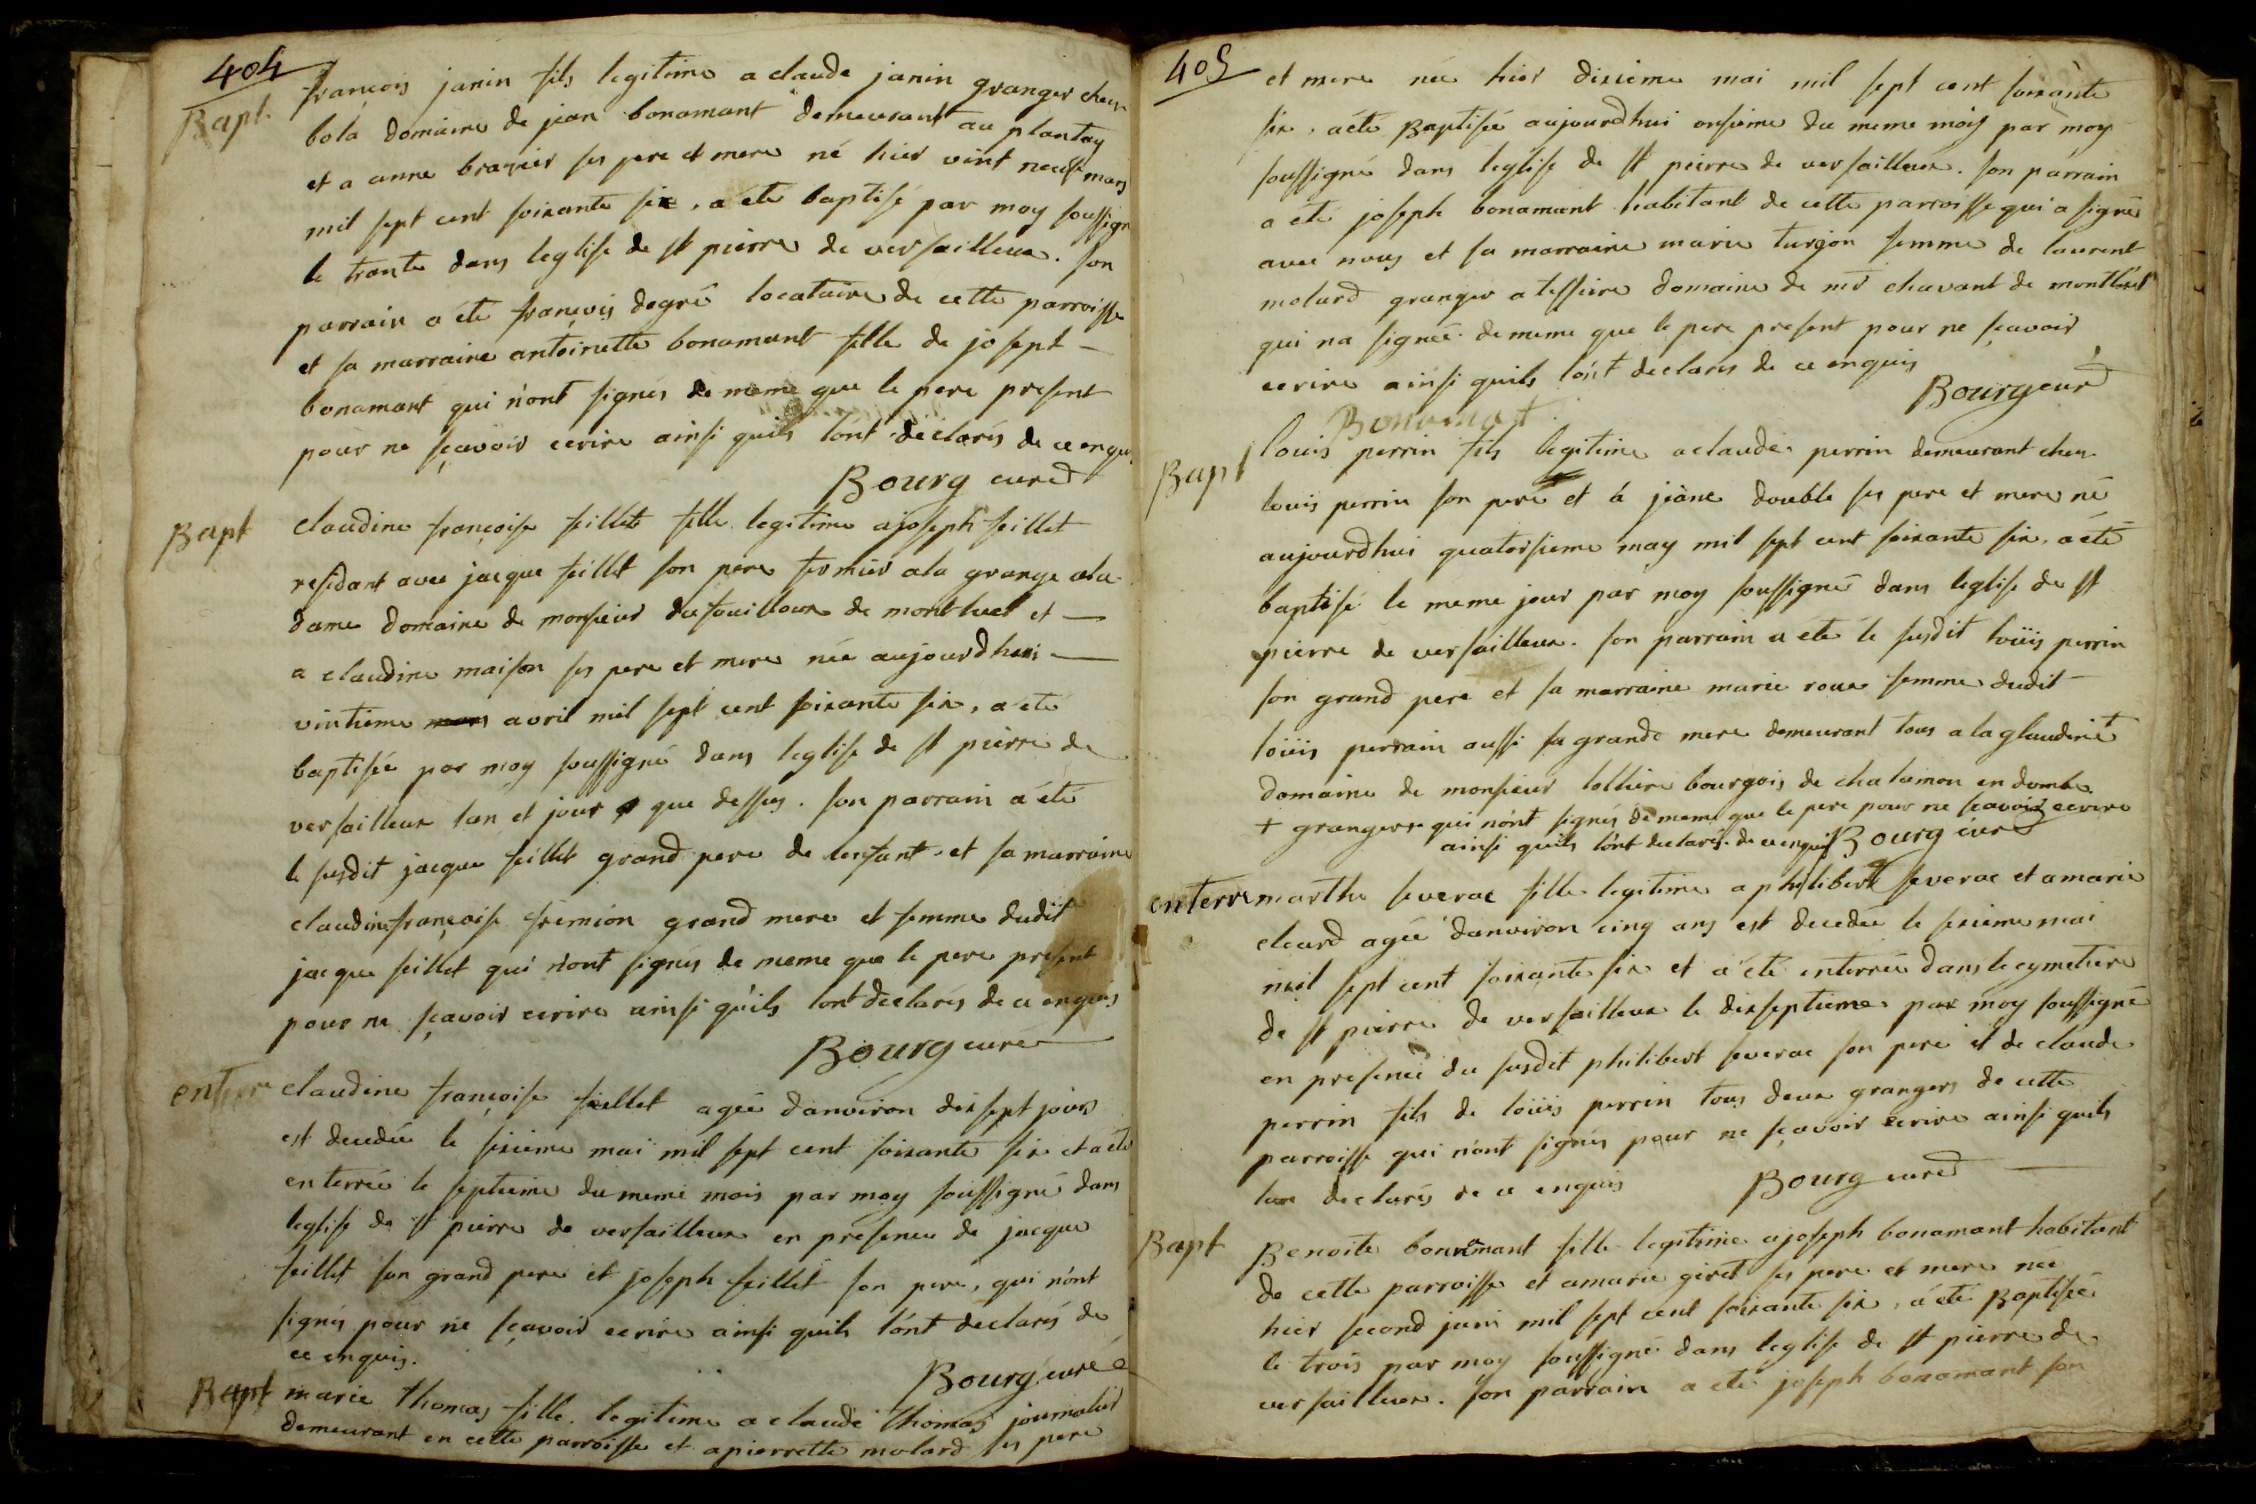 404
Bapt. françois janin fils legitime a claude janin granger chez
bola domaine de jean bonamant demeurant au plantay
et a anne brazier ses pere et mere né hier vint neuf mars
mil sept cent soixante six, a été baptisé par moy soussign
le trante dans leglise de st pierre de versailleux. son
parrain a été françois degré locataire de cette parroisse
et sa marraine antoinette bonamant fille de josept
bonamant qui n'ont signés de meme que le pere present
pour ne sçavoir ecrire ainsi quils l'ont déclarés de ce enqui
Bourg curé
Bapt claudine françoise feillet fille legitime a joseph feillet
residant avec jacque feillet son pere fermier a la grange a la
dame domaine de monsieur dufouilloux de montluel et
a claudine maison ses pere et mere née aujourdhui
vintieme avril mil sept cent soixante six, a été
baptisée par moy soussigné dans leglise de st pierre de
versailleux lan et jour que dessus. son parrain a été
le susdit jacque feillet grand pere de lenfant et sa marraine
claudine françoise fremion grand mere et femme dudit
jacque feillet qui n'ont signés de meme que le pere present
pour ne sçavoir ecrire ainsi qu'ils l'ont declarés de ce enquis
Bourg curé
enterre claudine françoise feillet agée danviron dix sept jours
est decedée le sixieme mai mil sept cent soixante six et a été
enterrée le septieme du meme mois par moy soussigné dans
leglise de st pierre de versailleux en presence de jacque
feillet son grand pere et joseph feillet son pere, qui n'ont
signés pour ne sçavoir ecrire ainsi quils l'ont declarés de
ce enquis.
Bourg curé
Bapt marie thomas fille legitime a claude thomas journalier
demeurant en cette parroisse et a pierrette molard ses pere
405
et mere née hier dixieme mai mil sept cent soixante
six, a été Baptisée aujourdhui onsieme du meme mois par moy
soussigné dans leglise de st pierre de versailleux. son parrain
a été joseph bonamant habitant de cette parroisse qui a signé
avec nous et sa marraine marie turgon femme de laurent
molard granger a domaine de mr chavant de montluel
qui na signée de meme que le pere present pour ne sçavoir
ecrire ainsi quils l'ont declarés de ce enquis
Bourg curé
Bonamant
Bapt louis perrin fils legitime a claude perrin demeurant chez
louis perrin son pere et à jeane double ses pere et mere né
aujourdhui quatorsieme may mil sept cent soixante six, a été
baptisé le meme jour par moy soussigné dans leglise de st
pierre de versailleux. son parrain a été le susdit loüis perrin
son grand pere et sa marraine marie roux femme dudit
loüis perrain aussi sa grande mere demeurant tous a la glaudine +
domaine de monsieur lolliere bourgois de chalamon en dombe
+ grangers qui n'ont signés de meme que le pere pour ne sçavoir ecrire
ainsi quils l'ont declarés de ce enquis Bourg curé
enterre marthe severac fille legitime a philibert severac et a marie
cleard agée danviron cinq ans est decedée le sixieme mai
mil sept cent soixante six et a été enterrée dans le cymetiere
de st pierre de versailleux le dixseptieme par moy soussigné
en presence du susdit philibert severac son pere et de claude
perrin fils de loüis perrin tous deux grangers de cette
parroisse qui n'ont signés pour ne sçavoir ecrire ainsi quils
lon declarés de ce enquis Bourg curé
Bapt Benoite bonnamant fille legitime a joseph bonamant habitant
de cette parroisse et a marie giret ses pere et mere née
hier second juin mil sept cent soixante six, a été Baptisée
le trois par moy soussigné dans leglise de st pierre de
versailleux. son parrain a été joseph bonamant son